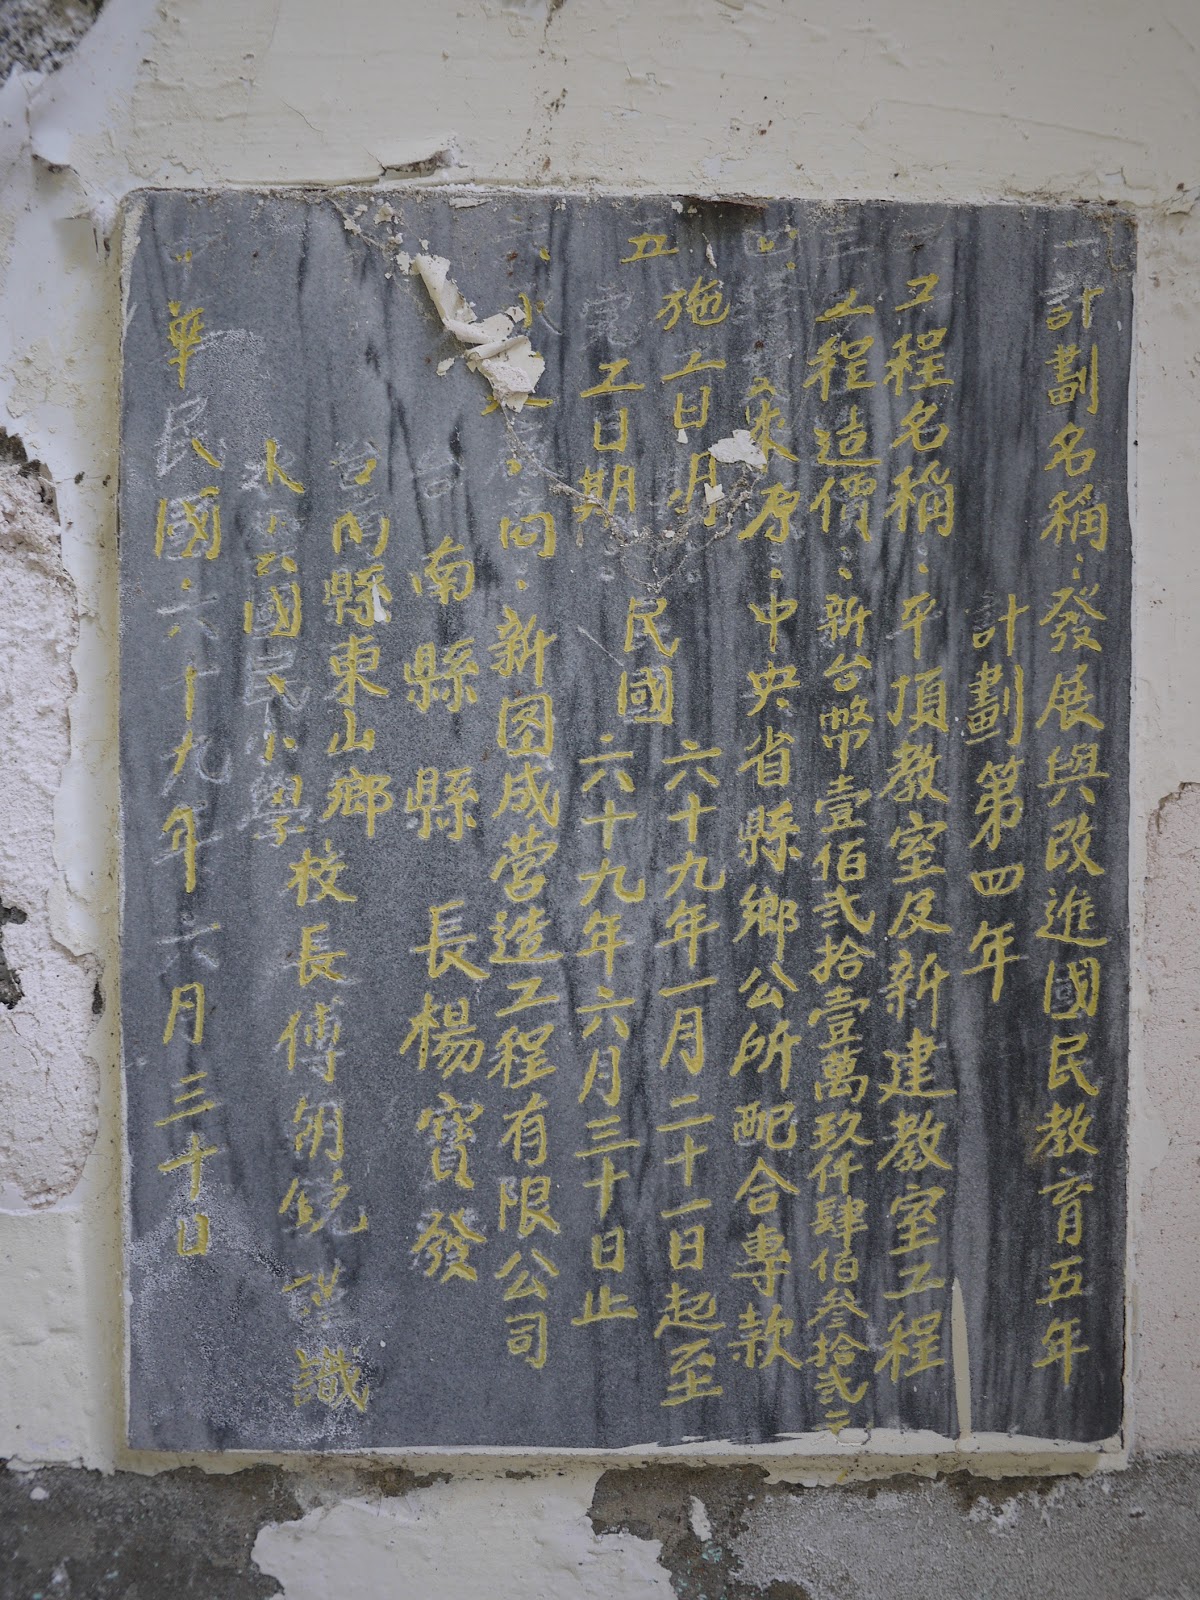 一計劃名稱：發展與改進國民教育五年
計劃第四年
工程名稱：平頂教室及新建教室工程
三工程造價：新台幣壹佰貳拾壹萬玖仟肆佰叁拾貳元
來源：中央省縣鄉公所配合專款
五施工日期：民國六十九年一月二十一日起至
工日期：六十九年六月三十日止
新图成营造工程有限公司
台南縣縣長楊寶發
台南縣東山鄉
國民小學校長傅 鏡謹識
中華民國六十九年六月三十日